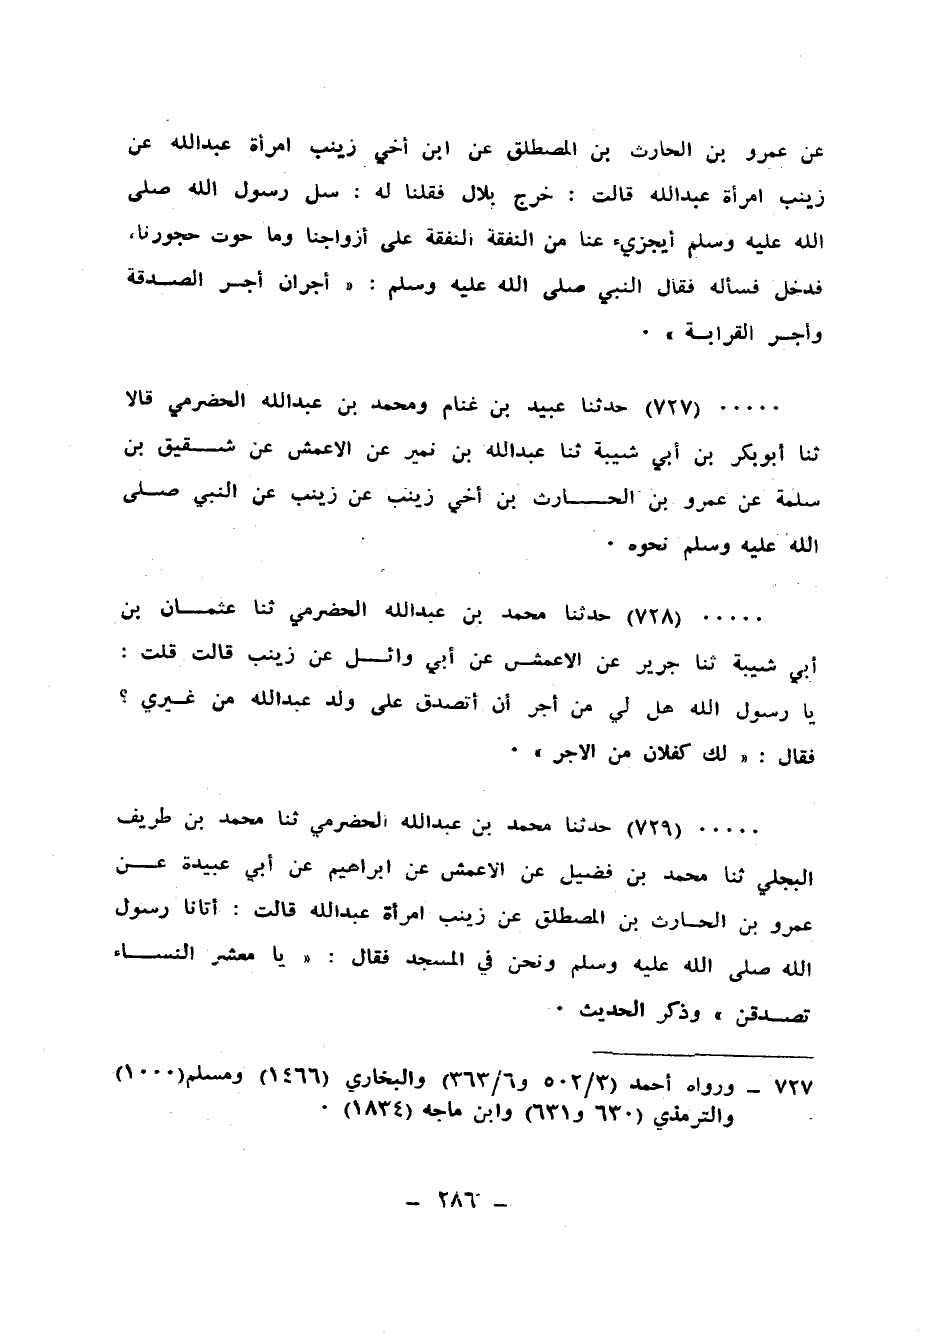 عن عمرو بن الحارث بن المصطلق عن ابن أخي زينب امرأة عبدالله عن
زينب امرأة عبدالله قالت : خرج بلال فقلنا له : سل رسول الله صلى
الله عليه وسلم أيجزيء عنا من النفقة النفقة على أزواجنا وما حوت حجورنا،
فدخل فسأله فقال النبي صلى الله عليه وسلم : « أجران أجـر الصـدقة
وأجـر القرابـة » ٠
٠٠٠٠٠ (٧٢٧) حدثنا عبيد بن غنام ومحمد بن عبدالله الحضرمي قالا
ثنا أبوبكر بن أبي شيبة ثنا عبدالله بن نمير عن الاعمش عن شـــقيق بن
سلمة عن عمرو بن الحـــارث بن أخي زينب عن زينب عن النبي صـلى
الله عليه وسلم نحوه ٠
٠٠٠٠٠ (٧٢٨) حدثنا محمد بن عبدالله الحضرمي ثنا عثمـــان بن
أبي شيبة ثنا جرير عن الاعمش عن أبي وائـــل عن زينب قالت قلت :
يا رسول الله هل لي من أجر أن أتصدق على ولد عبدالله من غـيري ؟
فقال : « لك كفلان من الاجر » ٠
٠٠٠٠٠ (٧٢٩) حدثنا محمد بن عبدالله الحضرمي ثنا محمد بن طريف
البجلي ثنا محمد بن فضيل عن الاعمش عن ابراهيم عن أبي عبيدة عـــن
عمرو بن الحـارث بن المصطلق عن زينب امرأة عبدالله قالت : أتانا رسول
الله صلى الله عليه وسلم ونحن في المسجد فقال : « يا معشر النســـاء
تصـدقن » وذكر الحديث ٠
٧٢٧ ــ ورواه أحمد (٥٠٢/٣ و٣٦٣/٦) والبخاري (١٤٦٦) ومسلم(١٠٠٠)
والترمذي (٦٣٠ و٦٣١) وابن ماجه (١٨٣٤) ٠
ــ ٢٨٦ ــ